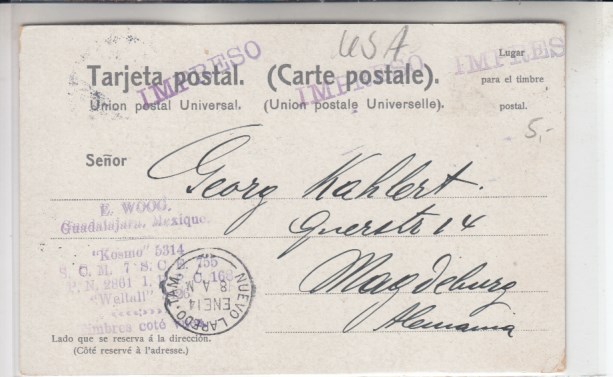 USA
IMPRESO IMPRESO IMPRES
Tarjeta postal. (Carte postale).
Union postal Universal. (Union postale Universelle).
Lugar
para el timbre
postal.
5,-
Señor
Georg Kahlert.
Querstr 14
Magdeburg
Alemania
E. WOOG.
Guadalajara, Mexique.
"Kosmo" 5314
S. C. M. 7 S. C. 755
P. N. 2861 I. 168
"Weltall"
Timbres coté
NUEVO LAREDO. TAM.
8 A M
ENE 14
Lado que se reserva á la dirección.
(Côté reservé à l'adresse.)